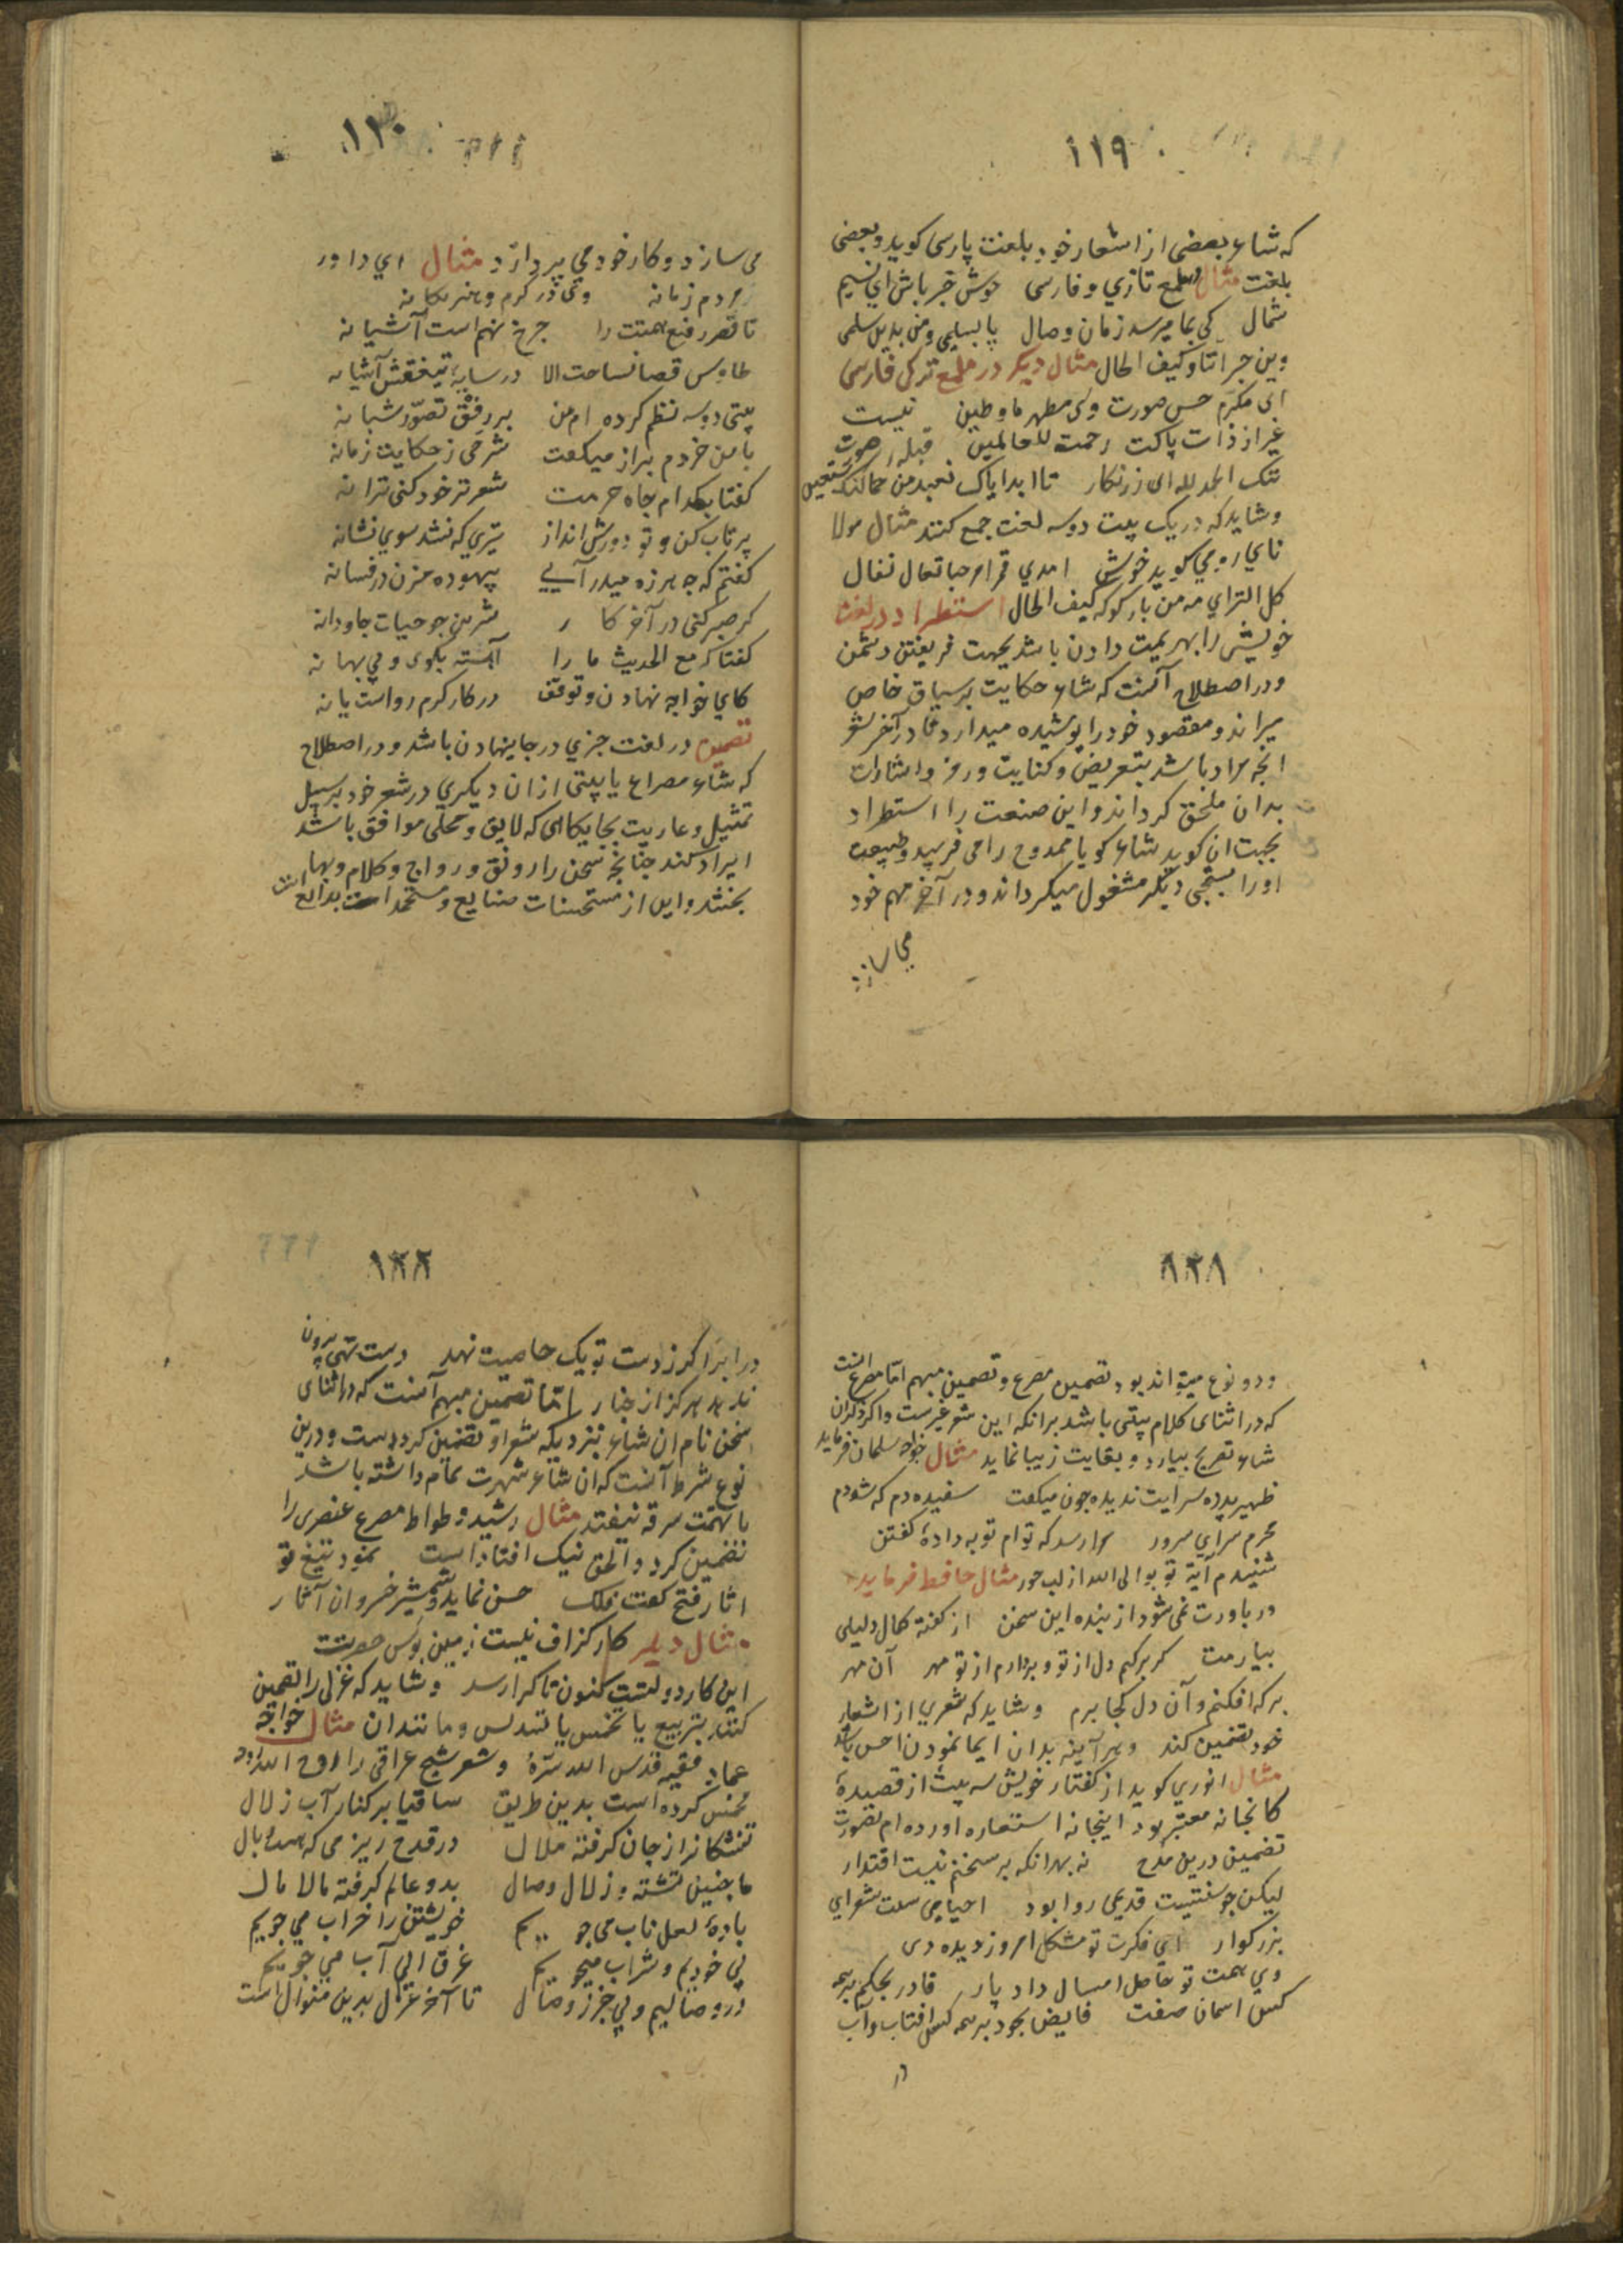 ١١٩
که شاعر بعضی از اشعار خود بلغت پارسی کوید و بعضی
بلغت مثال ملمع تازي و فارسی خوش خبر باش اي نسیم
شمال کی بما میرسد زمان وصال یا لسلمی ومن بذی سلمی
وین جیراننا وکیف الحال مثال دیکر در ملمع ترکی فارسی
ای مکرم حسن صورت وی مطهر ما وطین نیست
غیر از ذات پاکت رحمت للعالمین قبله صورت
تنک الحمد لله ای زرنکار تا ابد ایاک نعبد من نستعین
وشاید که در یک بیت دو سه لغت جمع کنند مثال مولا
ناي رومي کوید خوش امدي قرام حبا تعال تعال
کل التراي مه من بار کو که کیف الحال استطراد در لغت
خویشی را بهزیمت دادن باشد بجهت فریفتن دشمن
و در اصطلاح آنست که شاعر حکایت بر سیاق خاص
میراند و مقصود خود را پوشیده میدارد تا در آخر شعر
انچه مراد باشد بتعریض و کنایت و رمز و اشارات
بدان ملحق کرداند و این صنعت را استطراد
بجهت ان کوید شاعر کویا ممدوح را می فریبد و طبیعت
او را بچیزی دیکر مشغول میکرداند و در آخر مهم خود
می سازد
١٢٠
می سازد و کار خود می پردازد مثال اي داور
مردم زمانه وی در کرم و هنر یکانه
تا قصر رفیع همتت را چرخ نهم است آشیانه
طاوس قضا نساحت الا در سایه آشیانه
بیتی دو سه نظم کرده ام من بر رفق تصور شبانه
با من خردم براز میکفت شرحی ز حکایت زمانه
کفتا بکدام جاه حرمت شعر تر خود کنی ترانه
پرتاب کن و تو دورش انداز تیري که نشد سوي نشانه
کفتم که چه هرزه میدرآیی بیهوده مزن در فسانه
کر صبر کنی در آخر کار شیرین چو حیات جاودانه
کفتا که مع الحدیث ما را آهسته بکوی و بی بهانه
کاي خواجه نهادن و توقف در کار کرم رواست یا نه
تضمین در لغت چیزي در جاینهادن باشد و در اصطلاح
که شاعر مصراع یا بیتی از ان دیکري در شعر خود بر سبیل
تمثیل و عاریت بجایکاهی که لایق و محلی موافق باشد
ایراد کند چنانچه سخن را رونق و رواج و کلام وبها
بخشد و این از مستحسنات صنایع و مستحمدات بدایع است
١٢١
و دو نوع میتواند بود تضمین مصرع و تضمین مبهم اما مصرع انست
که در اثنای کلام بیتی باشد برانکه این شعر غیرست و اکر ذکر ان
شاعر تصریح بیارد و بغایت زیبا نماید مثال خواجه سلمان فرماید
ظهیر پرده سرایت ندیده چون میکفت سفیده دم که شدم
محرم سراي سرور مرا رسد که تو ام توبه داده کفتن
شنیدم آیة توبوا الی الله از لب حور مثال حافظ فرماید
ور باورت نمی شود از بنده این سخن از کفته کمال دلیلی
بیارمت کر برکنم دل از تو و بردارم از تو مهر آن مهر
بر که افکنم و آن دل کجا برم و شاید که شعري از اشعار
خود تضمین کند و هر آینه بدان ایما نمودن احسن باشد
مثال انوري کوید از کفتار خویش سه بیت از قصیدهٔ
کانجا نه معتبر بود اینجا نه استعاره اورده ام بصورت
تضمین درین مدح نه بهر انکه بر سخنم نیست اقتدار
لیکن چو سنتیست قدیمی روا بود احیای سنت شعراي
بزرکوار اي فکرت تو مشکل امروز دیده دی
وي همت تو حاصل امسال داد پار قادر بحکم بر همه
کس اسمان صفت فایض بجود بر همه کس افتاب وار
در
١٢٢
در ابر اکر ز دست تو یک خاصیت نهد دست تهی برون
ندهد هرکز از چنار اما تضمین مبهم آنست که در اثنای
سخن نام ان شاعر نبرد یکه شعر او تضمین کرده است و درین
نوع شرط آنست که ان شاعر شهرت تمام داشته باشد
تا بتهمت سرقه نیفتد مثال رشید وطواط مصرع عنصری را
تضمین کرد و الحق نیک افتاد است نمود تیغ تو
اثار فتح کفت فلک چنین نماید شمشیر خسروان آثار
مثال دیکر کار کزاف نیست زمین بوس حضرتت
این کار دولتست کنون تا کرا رسد و شاید که غزلی را تضمین
کنند بتربیع یا تخمیس یا تسدیس و مانند ان مثال خواجه
عماد فقیه قدس الله سره و شعر شیخ عراقی را روح الله روحه
مخمس کرده است بدین طریق ساقیا بر کنار آب زلال
تشنکان را ز جان کرفته ملال در قدح ریز می که شد وبال
ما چنین تشنه و زلال وصال بدو عالم کرفته مالا مال
بادهٔ لعل ناب می جوییم خویشتن را خراب می جوییم
بی خودیم و شراب میجوییم غرق ابیم آب می جوییم
در وصالیم و بی خبر ز وصال تا آخر غزل بدین منوال است